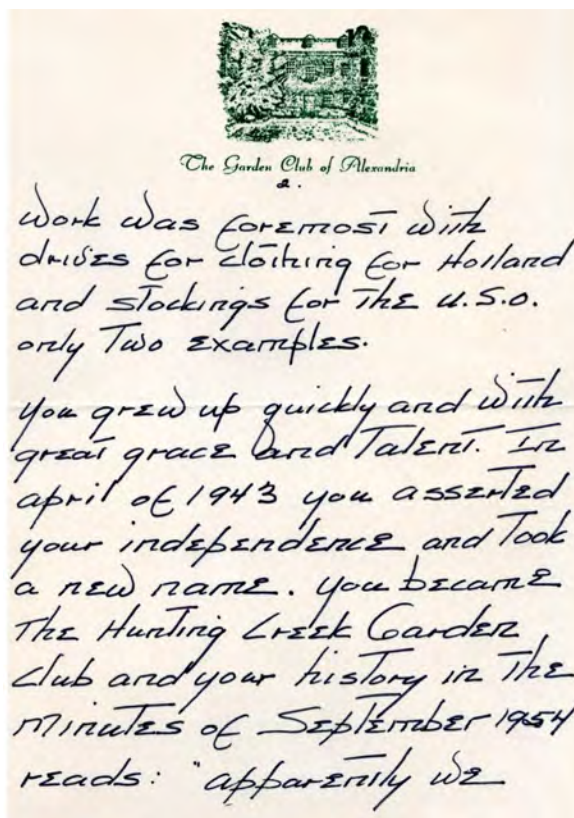 The Garden Club of Alexandria
2.
work was foremost with
drives for clothing for Holland
and stockings for the U.S.O.
only two examples.
you grew up quickly and with
great grace and talent. In
april of 1943 you asserted
your independence and took
a new name. you became
the Hunting Creek Garden
Club and your history in the
minutes of September 1954
reads: "apparently we